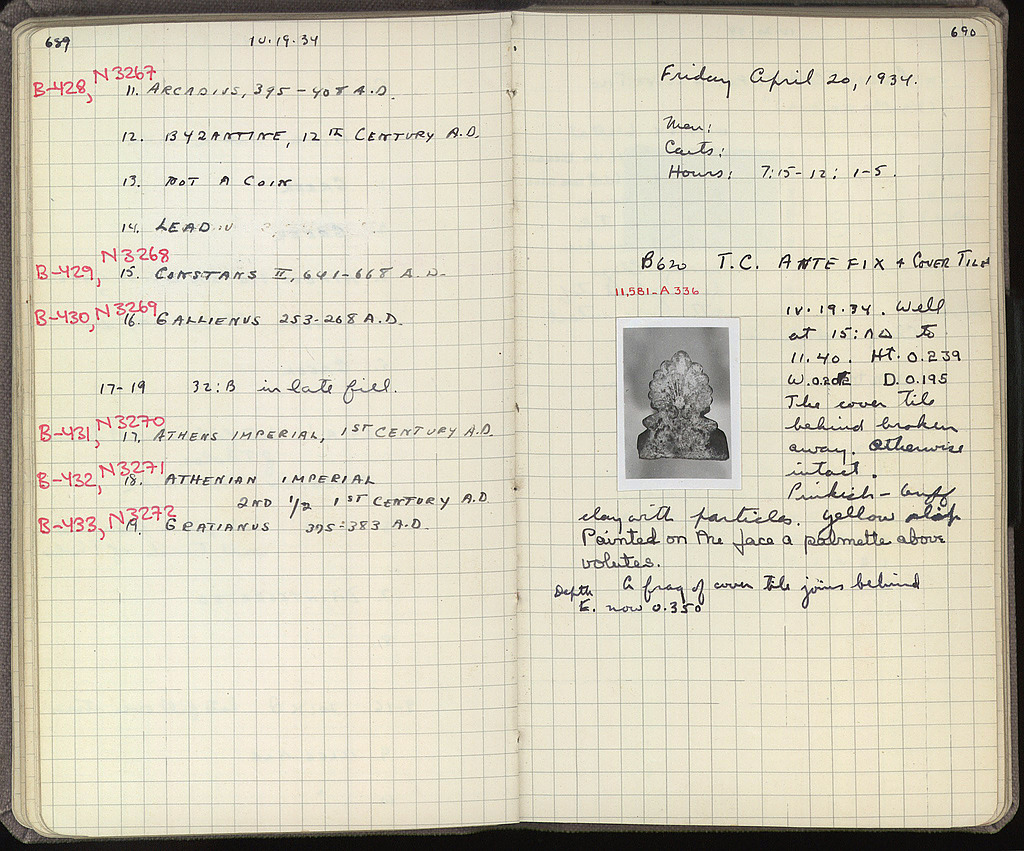 689
IV.19.34
B-428, N3267
11. ARCADIUS, 395-408 A.D.
12. BYZANTINE, 12TH CENTURY A.D.
13. NOT A COIN
14. LEAD
B-429, N3268
15. CONSTANS II, 641-668 A.D.
B-430, N3269
16. GALLIENUS 253-268 A.D.
17-19 32:B in late fill.
B-431, N3270
17. ATHENS IMPERIAL, 1ST CENTURY A.D.
B-432, N3271
18. ATHENIAN IMPERIAL
2ND 1/2 1ST CENTURY A.D
B-433, N3272
19. GRATIANUS 375-383 A.D.
690
Friday April 20, 1934.
Men:
Carts:
Hours: 7:15-12; 1-5.
B620 T.C. ANTEFIX + COVER TILE
11,581-A 336
IV.19.34. Well
at 15:ΛΔ to
11.40. Ht. 0.239
W. D. 0.195
The cover tile
behind broken
away. Otherwise
intact.
Pinkish-buff
clay with particles. Yellow slip
Painted on the face a palmette above
volutes.
Depth A frag of cover tile joins behind
E. now 0.350